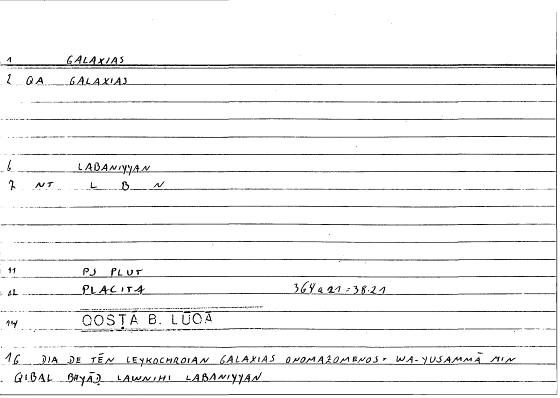 1 GALAXIAS
2 QA GALAXIAS
6 LABANIYYAN
7 NT L B N
11 PS PLUT
12 PLACITA 364a21 = 38.21
14 QOSṬĀ B. LŪQĀ
16 DIA DE TĒN LEYKOCHROIAN GALAXIAS ONOMAZOMENOS · WA-YUSAMMĀ MIN
QIBAL BAYĀḌ LAWNIHI LABANIYYAN